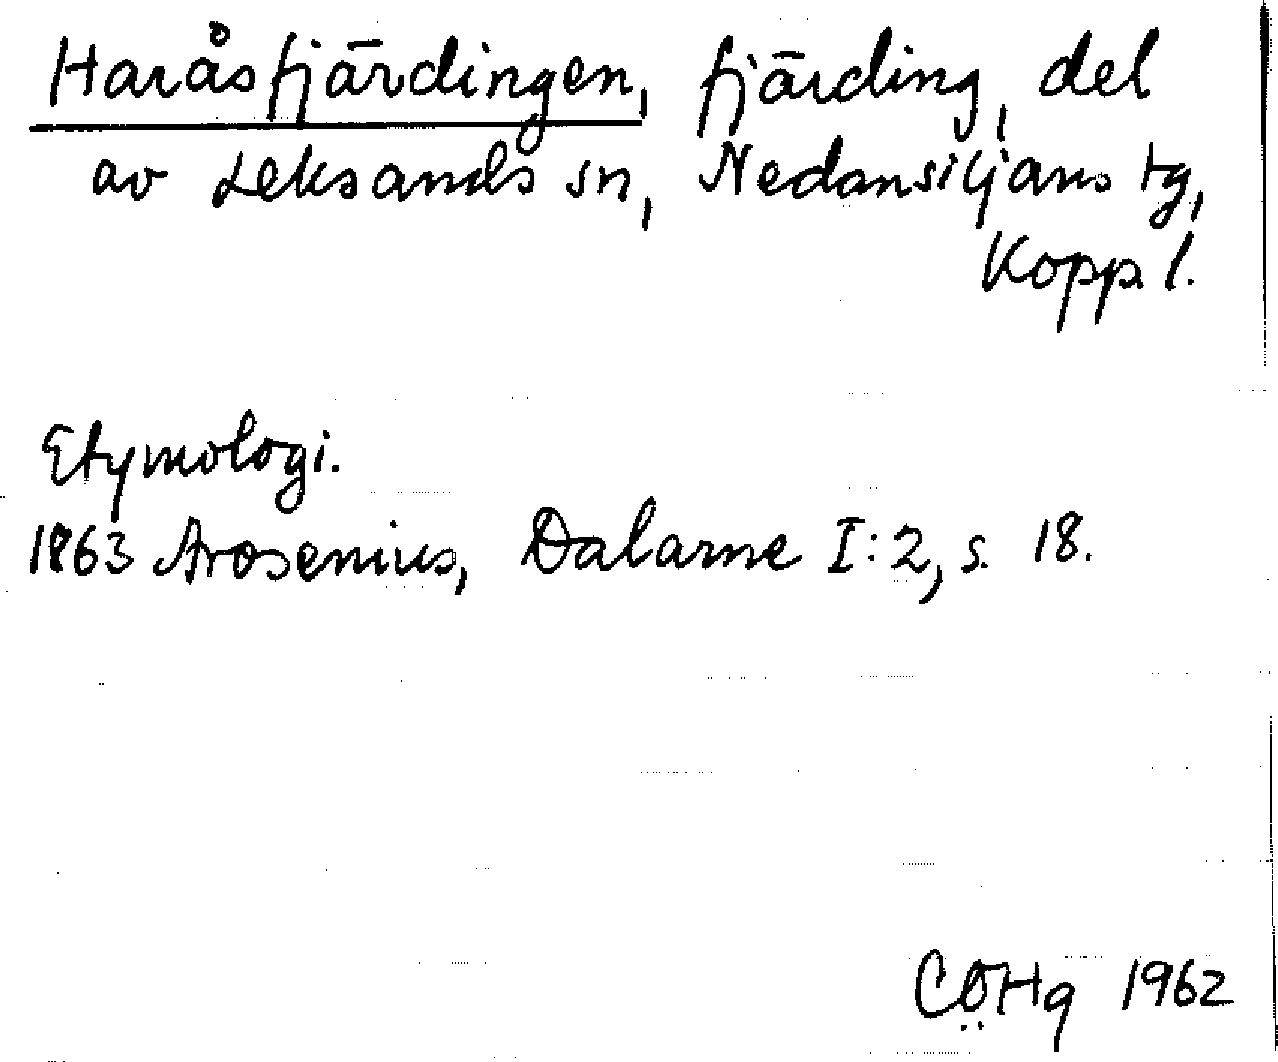 Haråsfjärdingen, fjärding, del
av Leksands sn, Nedansiljans tg,
Kopp. l.
Etymologi.
1863 Arosenius, Dalarne I:2, s. 18.
CÖHg 1962